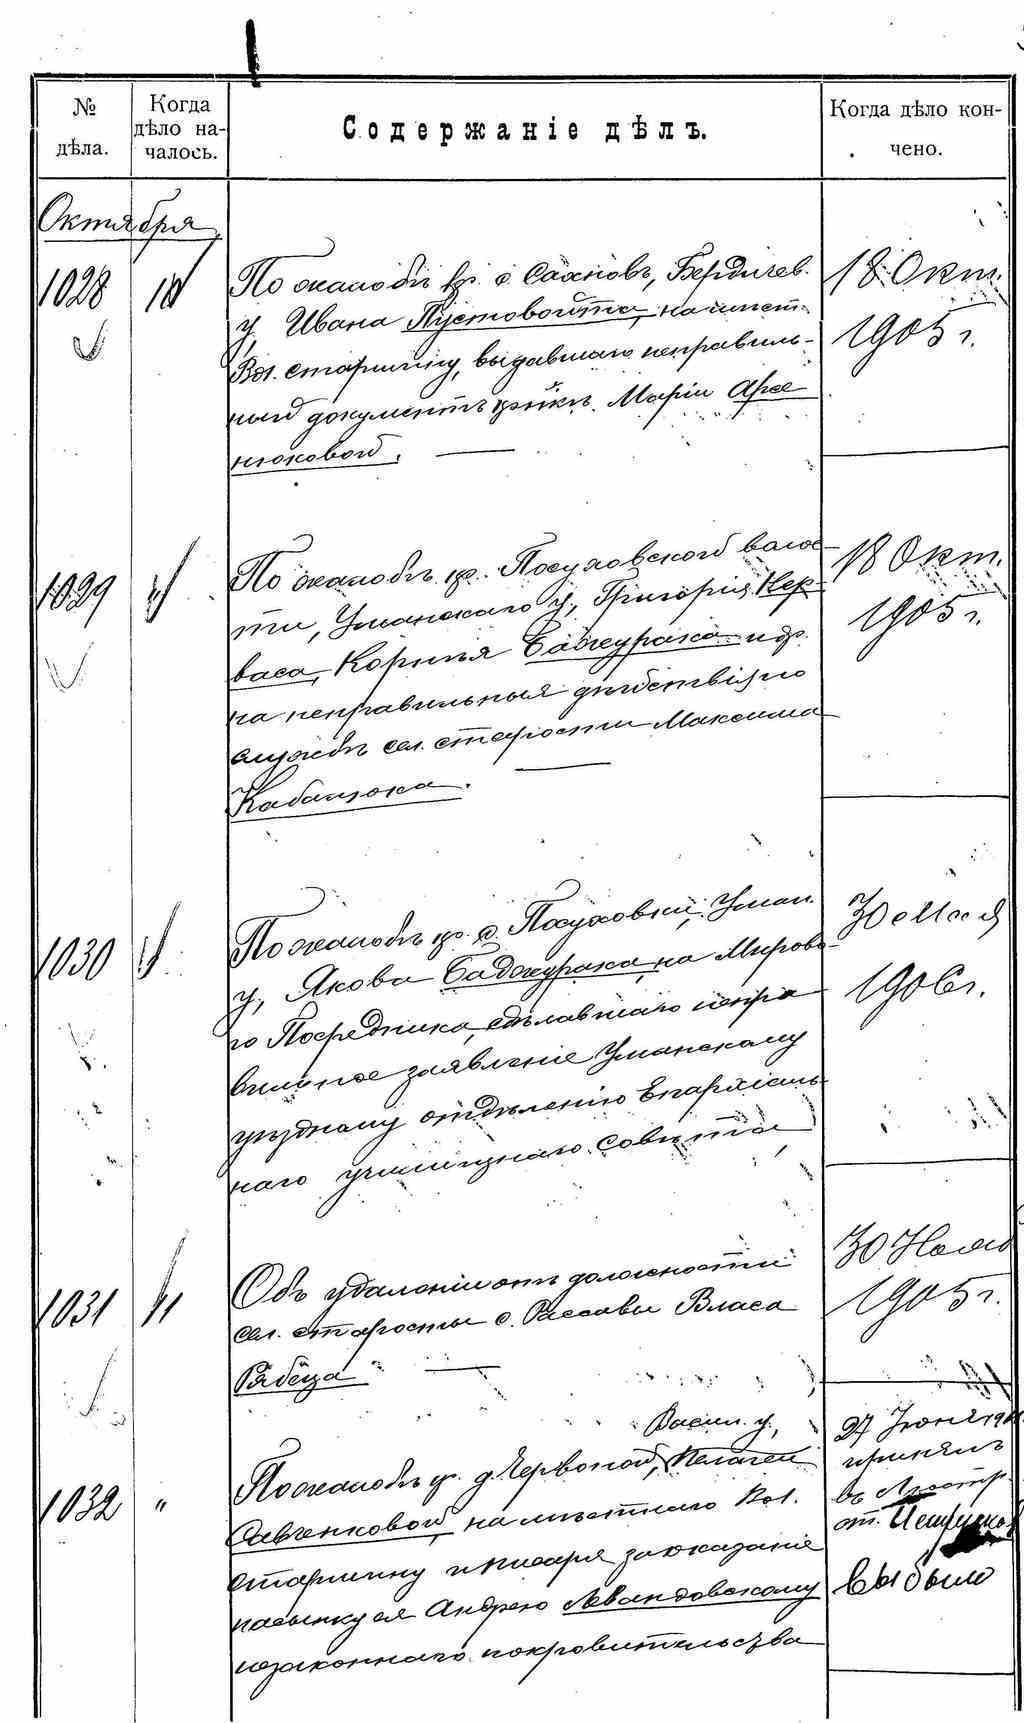 № дѣла.
Когда дѣло на-
чалось.
Содержаніе дѣлъ.
Когда дѣло кон-
чено.
Октября
1028
10
По жалобѣ кр. с. Сахновъ, Бердичев.
у, Ивана Пустовойта, на мѣст.
Вол. старшину, выдавшаго неправиль-
ный документъ кр-нкѣ Маріи Арсе
нюковой.
18 Окт.
1905 г.
1029
"
По жалобѣ кр. Посуховской волос-
ти, Уманскаго у, Григорія Кер-
васа, Корнѣя Бабжурака и др.
на неправильныя дѣйствія по
службѣ сел. старосты Максима
Кабанюка.
18 Окт.
1905 г.
1030
"
По жалобѣ кр. с. Посуховки, Уман.
у, Якова Бабжурака, на Мирово-
го Посредника, сдѣлавшаго непра
вильное заявленіе Уманскому
уѣздному отдѣленію Епархіаль-
наго училищнаго совѣта,
30 Мая
1906 г.
1031
"
Объ удаленіи отъ должности
сел. старосты с. Рассавы Власа
Рябеца
30 Нояб
1905 г.
1032
"
Васил. у,
По жалобѣ кр. д. Червоной, Пелагеи
Савченковой, на мѣстнаго Вол.
старшину и писаря за оказаніе
пасынку ея Андрею Левандовскому
незаконнаго покровительства
27 Іюня
принялъ
въ
от.
выбыло